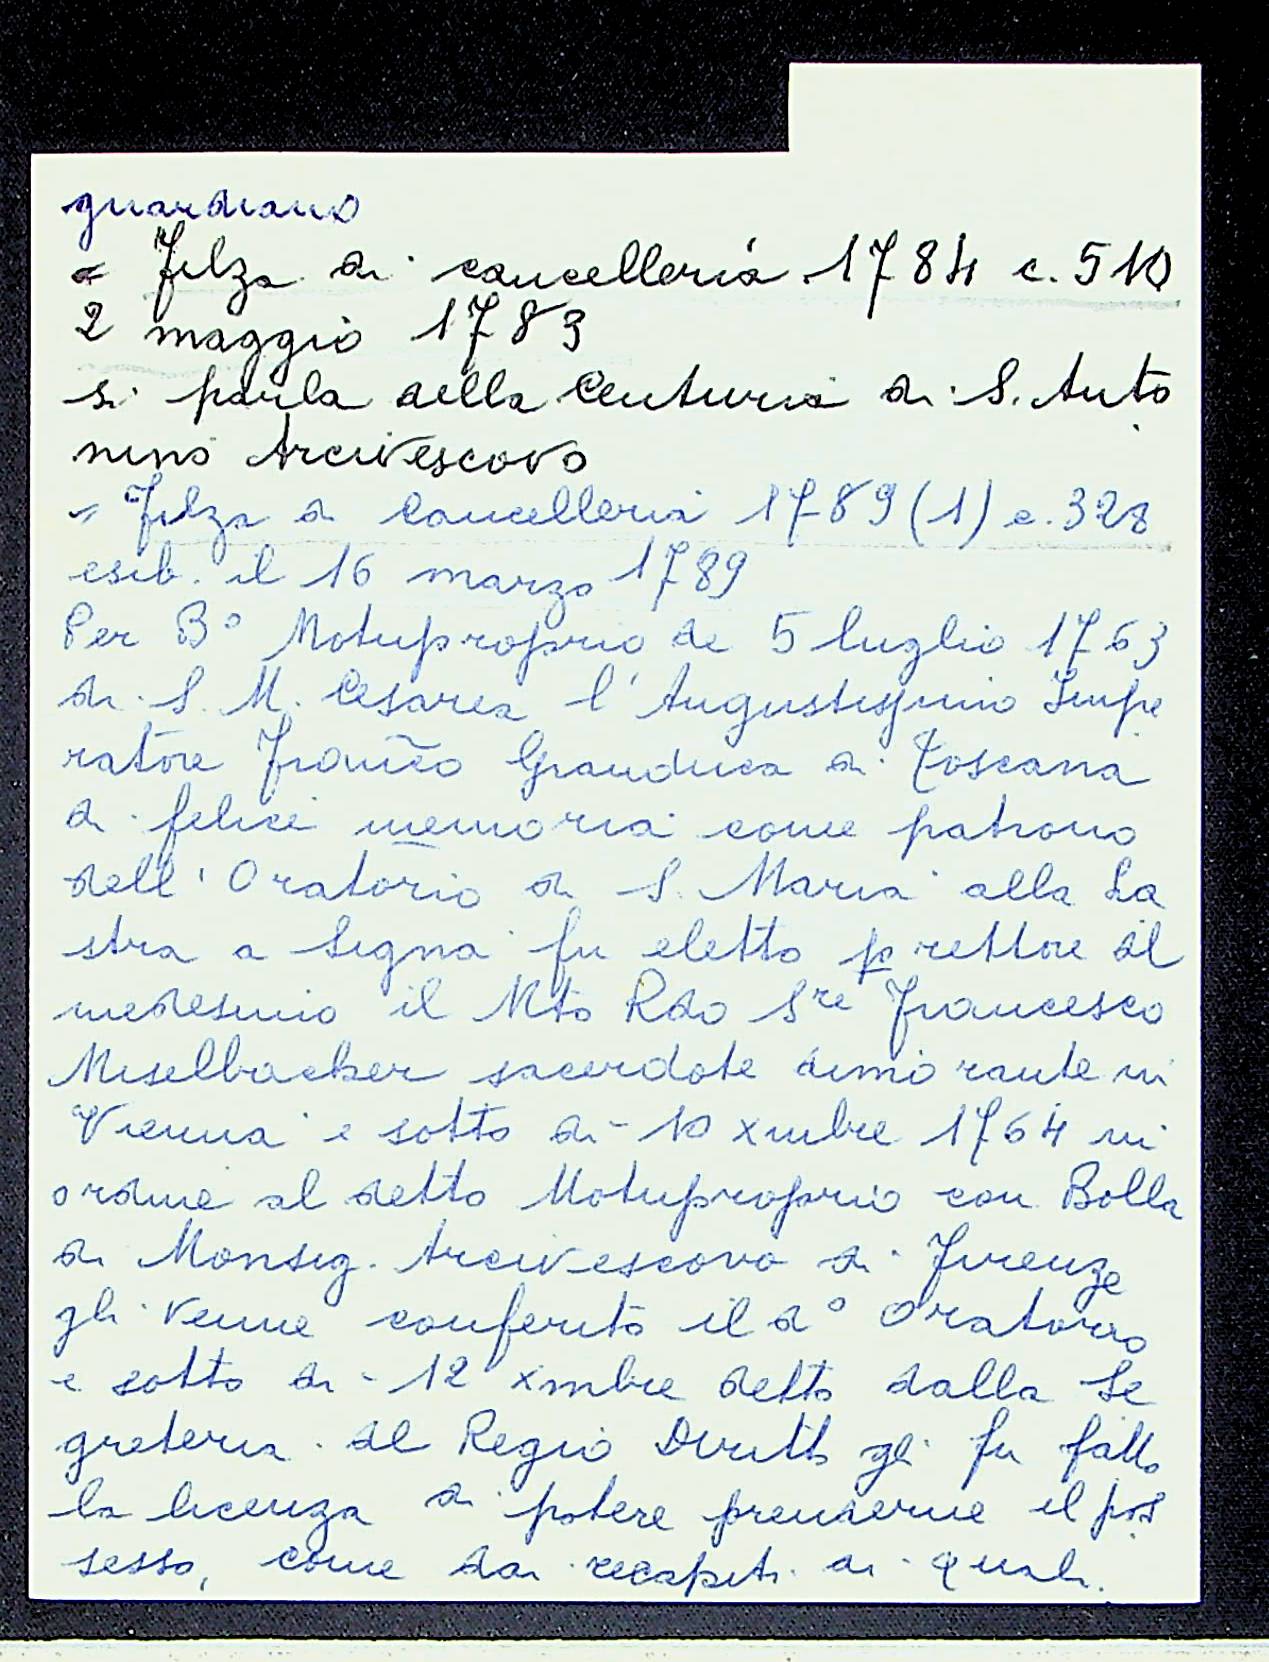 guardiano
= Filza di cancelleria 1784 c. 510
2 maggio 1783
si parla della Centuria di S. Anto
nino Arcivescovo
= Filza di Cancelleria 1789 (1) c. 328
esib. il 16 marzo 1789
Per B° Motuproprio de 5 luglio 1763
di S. M. Cesarea l'Augustissimo Impe
ratore Franc̃o Granduca di Toscana
di felice memoria come patrono
dell'Oratorio di S. Maria alla La
stra a Signa fu eletto p rettore del
medesimo il Mto Rdo Sre Francesco
Miselbacker sacerdote dimorante in
Vienna e sotto di - 10 xmbre 1764 in
ordine al detto Motuproprio con Bolla
di Monsig. Arcivescovo di Firenze
gli venne conferito il d° Oratorio
e sotto di - 12 xmbre detto dalla Se
greteria del Regio Diritto gli fu fatto
la licenza di potere prenderne il pos
sesso, come da recapiti di quali.